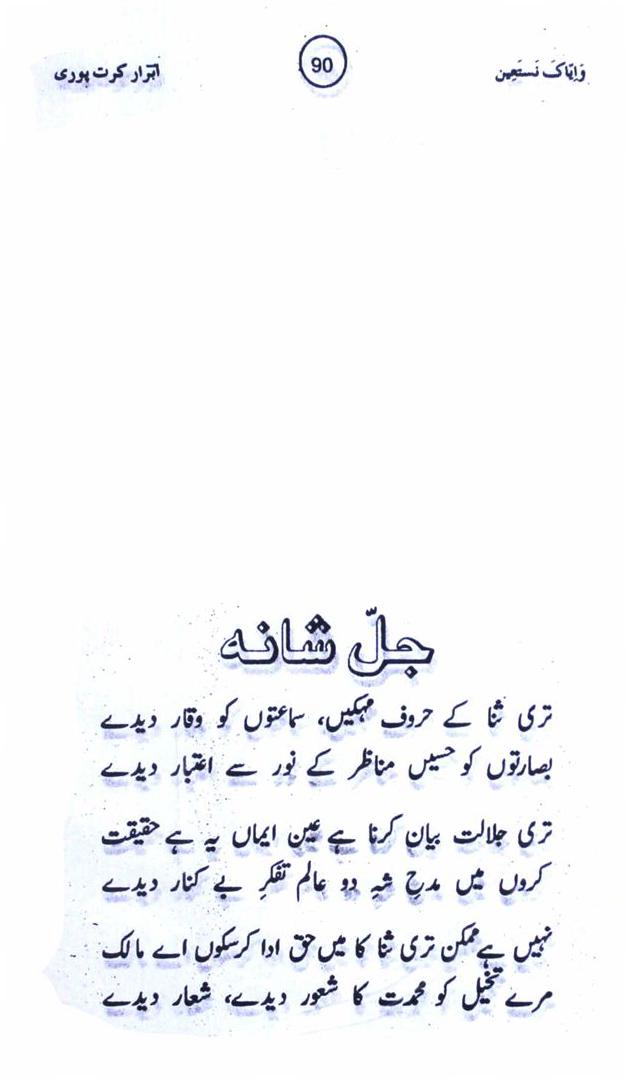 وَاِیّاکَ نَستَعِین
90
ابرار کرت پوری
جلّ شانہ
تری ثنا کے حروف مہکیں، سماعتوں کو وقار دیدے
بصارتوں کو حسیں مناظر کے نور سے اعتبار دیدے
تری جلالت بیان کرنا ہے عین ایماں یہ ہے حقیقت
کروں میں مدحِ شہِ دو عالم تفکرِ بے کنار دیدے
نہیں ہے ممکن تری ثنا کا میں حق ادا کرسکوں اے مالک
مرے تخیل کو محمدت کا شعور دیدے، شعار دیدے